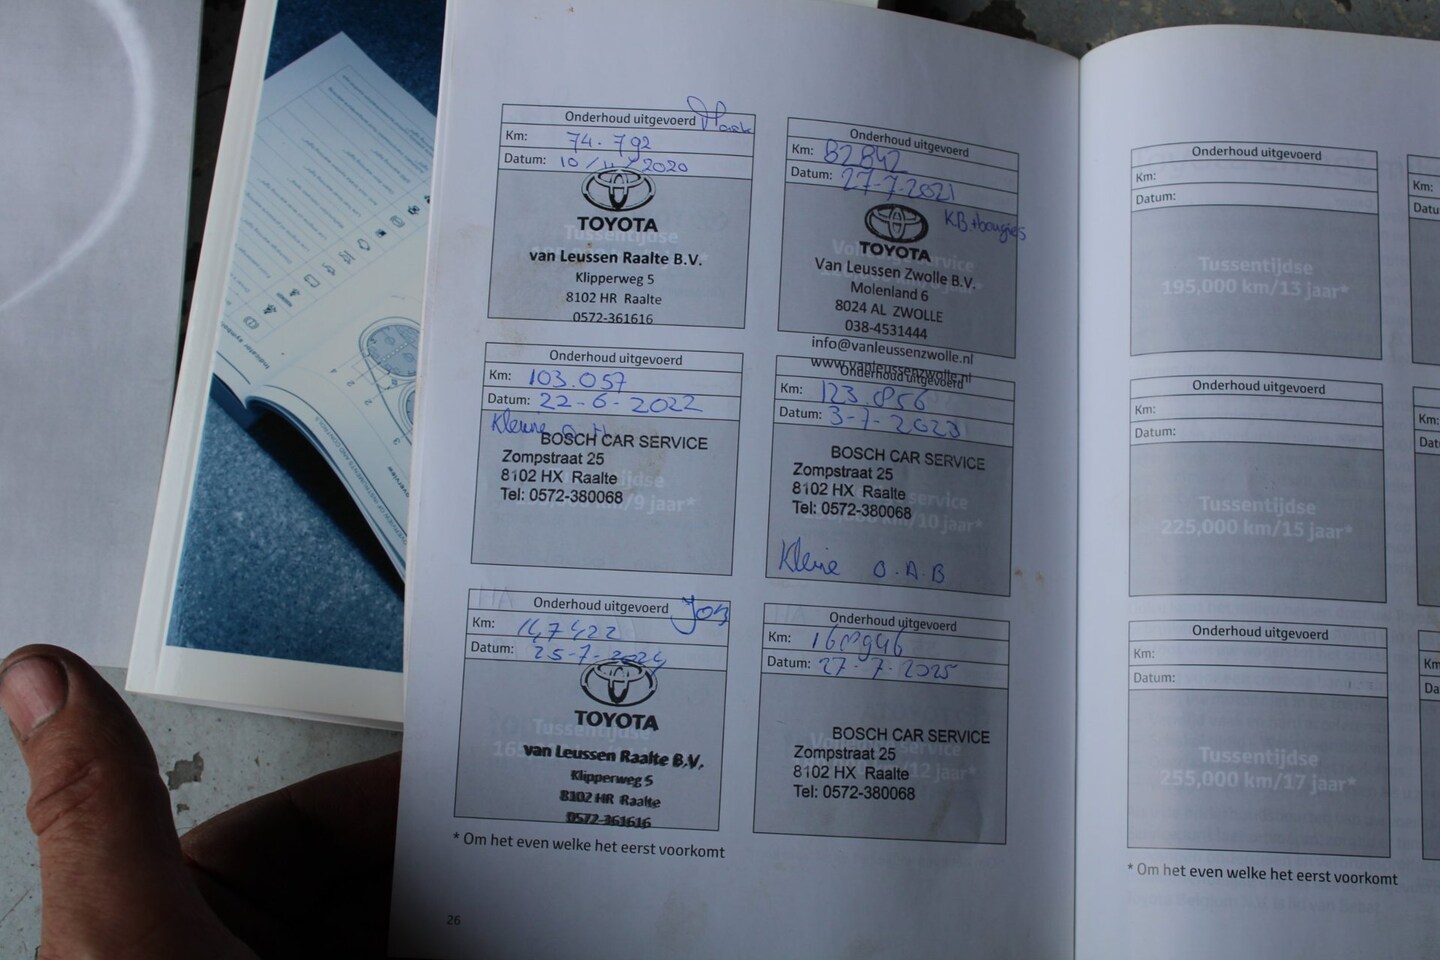 Onderhoud uitgevoerd
Km: 74.792
Datum: 10/11/2020
TOYOTA
Tussentijdse
van Leussen Raalte B.V.
Klipperweg 5
8102 HR Raalte
0572-361616
Onderhoud uitgevoerd
Km: 82842
Datum: 27-7-2021
KB+bougies
TOYOTA
Van Leussen Zwolle B.V.
Molenland 6
8024 AL ZWOLLE
038-4531444
info@vanleussenzwolle.nl
www.vanleussenzwolle.nl
Onderhoud uitgevoerd
Km: 103.057
Datum: 22-6-2022
Kleine
BOSCH CAR SERVICE
Zompstraat 25
8102 HX Raalte
Tel: 0572-380068
km/9 jaar*
Onderhoud uitgevoerd
Km: 123.856
Datum: 3-7-2023
BOSCH CAR SERVICE
Zompstraat 25
8102 HX Raalte
Tel: 0572-380068
km/10 jaar*
Kleine O.A.B
Onderhoud uitgevoerd
Km: 147422
Datum: 25-7-2024
TOYOTA
Tussentijdse
van Leussen Raalte B.V.
Klipperweg 5
8102 HR Raalte
0572-361616
Onderhoud uitgevoerd
Km:
Datum: 27-7-2025
BOSCH CAR SERVICE
Zompstraat 25
8102 HX Raalte
Tel: 0572-380068
/12 jaar*
* Om het even welke het eerst voorkomt
26
Onderhoud uitgevoerd
Km:
Datum:
Tussentijdse
195,000 km/13 jaar*
Onderhoud uitgevoerd
Km:
Datum:
Tussentijdse
225,000 km/15 jaar*
Onderhoud uitgevoerd
Km:
Datum:
Tussentijdse
255,000 km/17 jaar*
* Om het even welke het eerst voorkomt
Km:
Datu
Km:
Dat
Km
Da